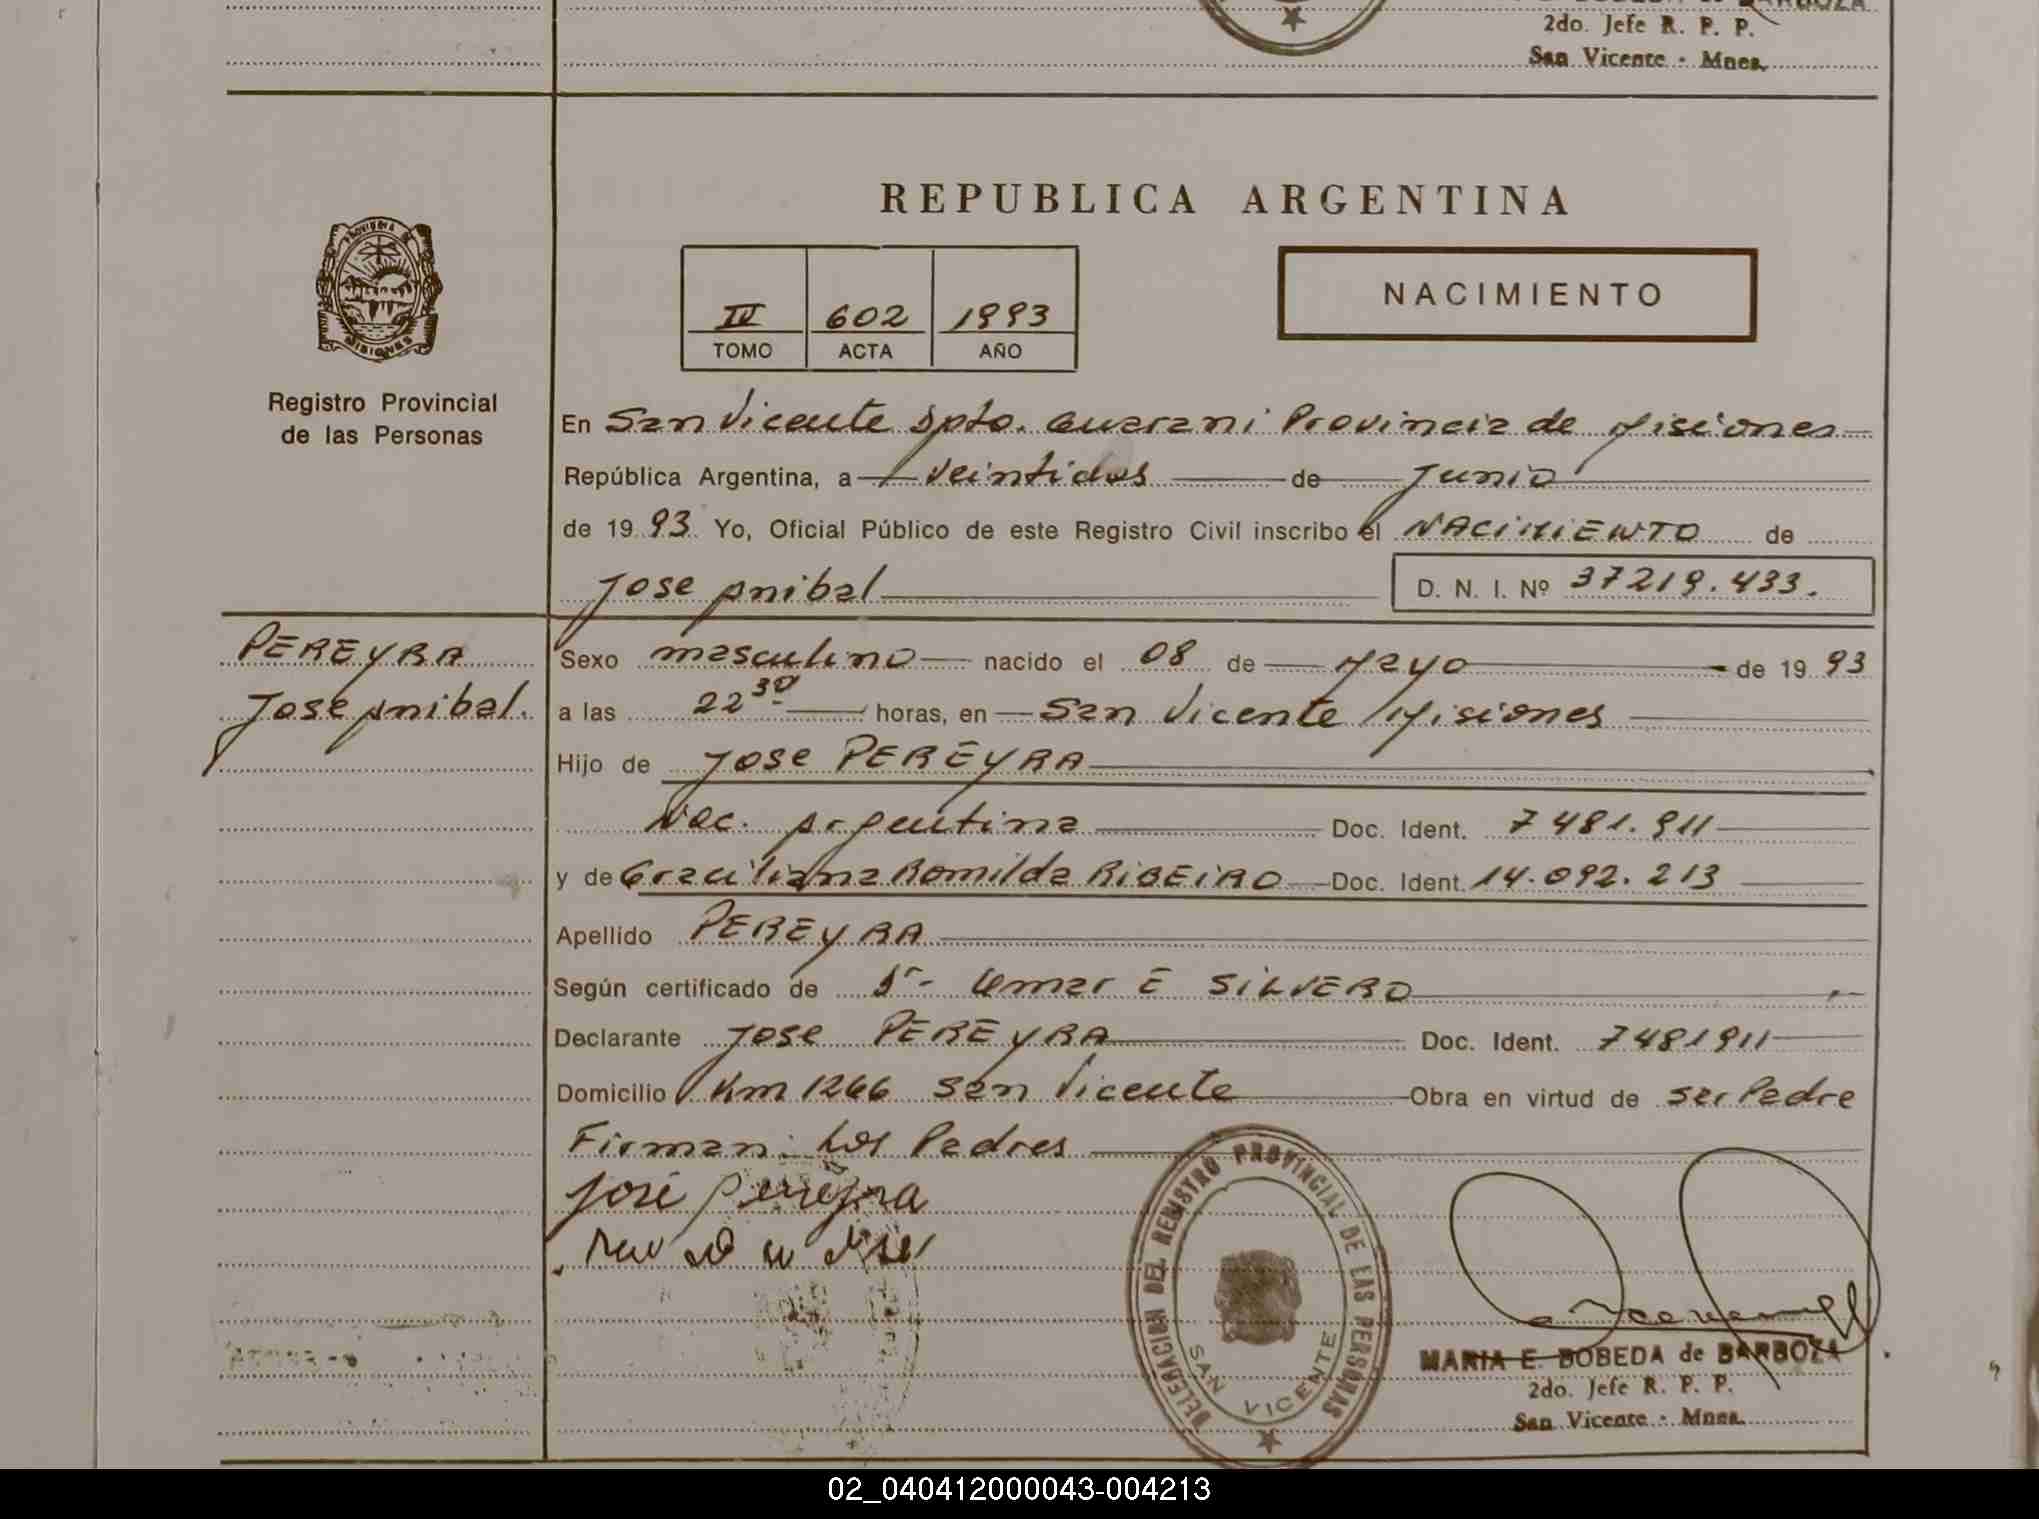 2do. Jefe R. P. P.
San Vicente - Mnes.
REPUBLICA ARGENTINA
PROVINCIA DE
MISIONES
Registro Provincial
de las Personas
IV 602 1993
TOMO ACTA AÑO
NACIMIENTO
En San Vicente Dpto. Guarani Provincia de Misiones
República Argentina, a veintidos de Junio
de 19 93 Yo, Oficial Público de este Registro Civil inscribo el NACIMIENTO de
Jose Anibal D. N. I. Nº 37219.433.
PEREYRA
Jose Anibal.
Sexo masculino nacido el 08 de Mayo de 19 93
a las 22 30 horas, en San Vicente Misiones
Hijo de Jose PEREYRA
Nac. Argentina Doc. Ident. 7481.911
y de Graciliana Romilda RIBEIRO Doc. Ident. 14.092.213
Apellido PEREYRA
Según certificado de Dr- Omar E SILVERO
Declarante Jose PEREYRA Doc. Ident. 7481911
Domicilio Km 1266 San Vicente Obra en virtud de ser Padre
Firman: Los Padres
José Pereyra
DELEGACION DEL REGISTRO PROVINCIAL DE LAS PERSONAS
SAN VICENTE
MARIA E. BOBEDA de BARBOZA
2do. Jefe R. P. P.
San Vicente - Mnes.
02_040412000043-004213